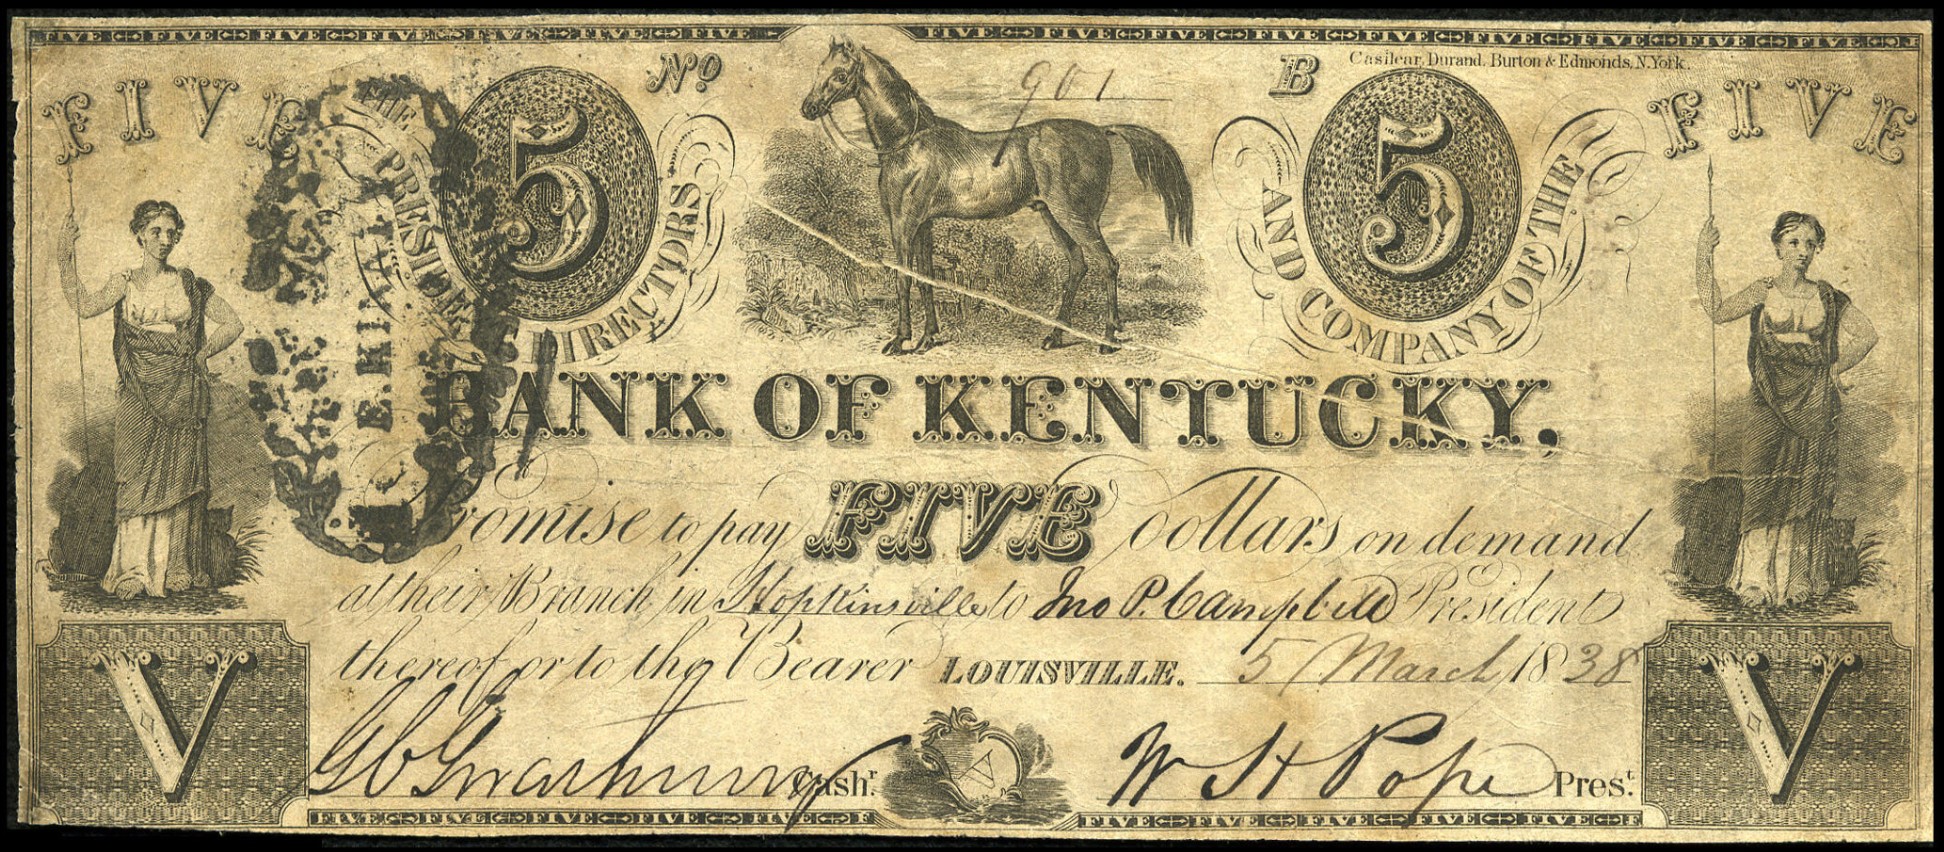 FIVE FIVE FIVE FIVE FIVE FIVE FIVE FIVE FIVE FIVE FIVE FIVE FIVE FIVE FIVE FIVE
Casilear, Durand, Burton & Edmonds, N. York.
FIVE
5
No 901
B
5
FIVE
THE PRESIDENT DIRECTORS
AND COMPANY OF THE
E. KI
BANK OF KENTUCKY,
Promise to pay FIVE dollars on demand
at their Branch in Hopkinsville to Jno P. Campbell President
thereof or to the Bearer LOUISVILLE. 5 March 1838
Cashr. W H Pope Prest.
V
V
V
FIVE FIVE FIVE FIVE FIVE FIVE FIVE FIVE FIVE FIVE FIVE FIVE FIVE